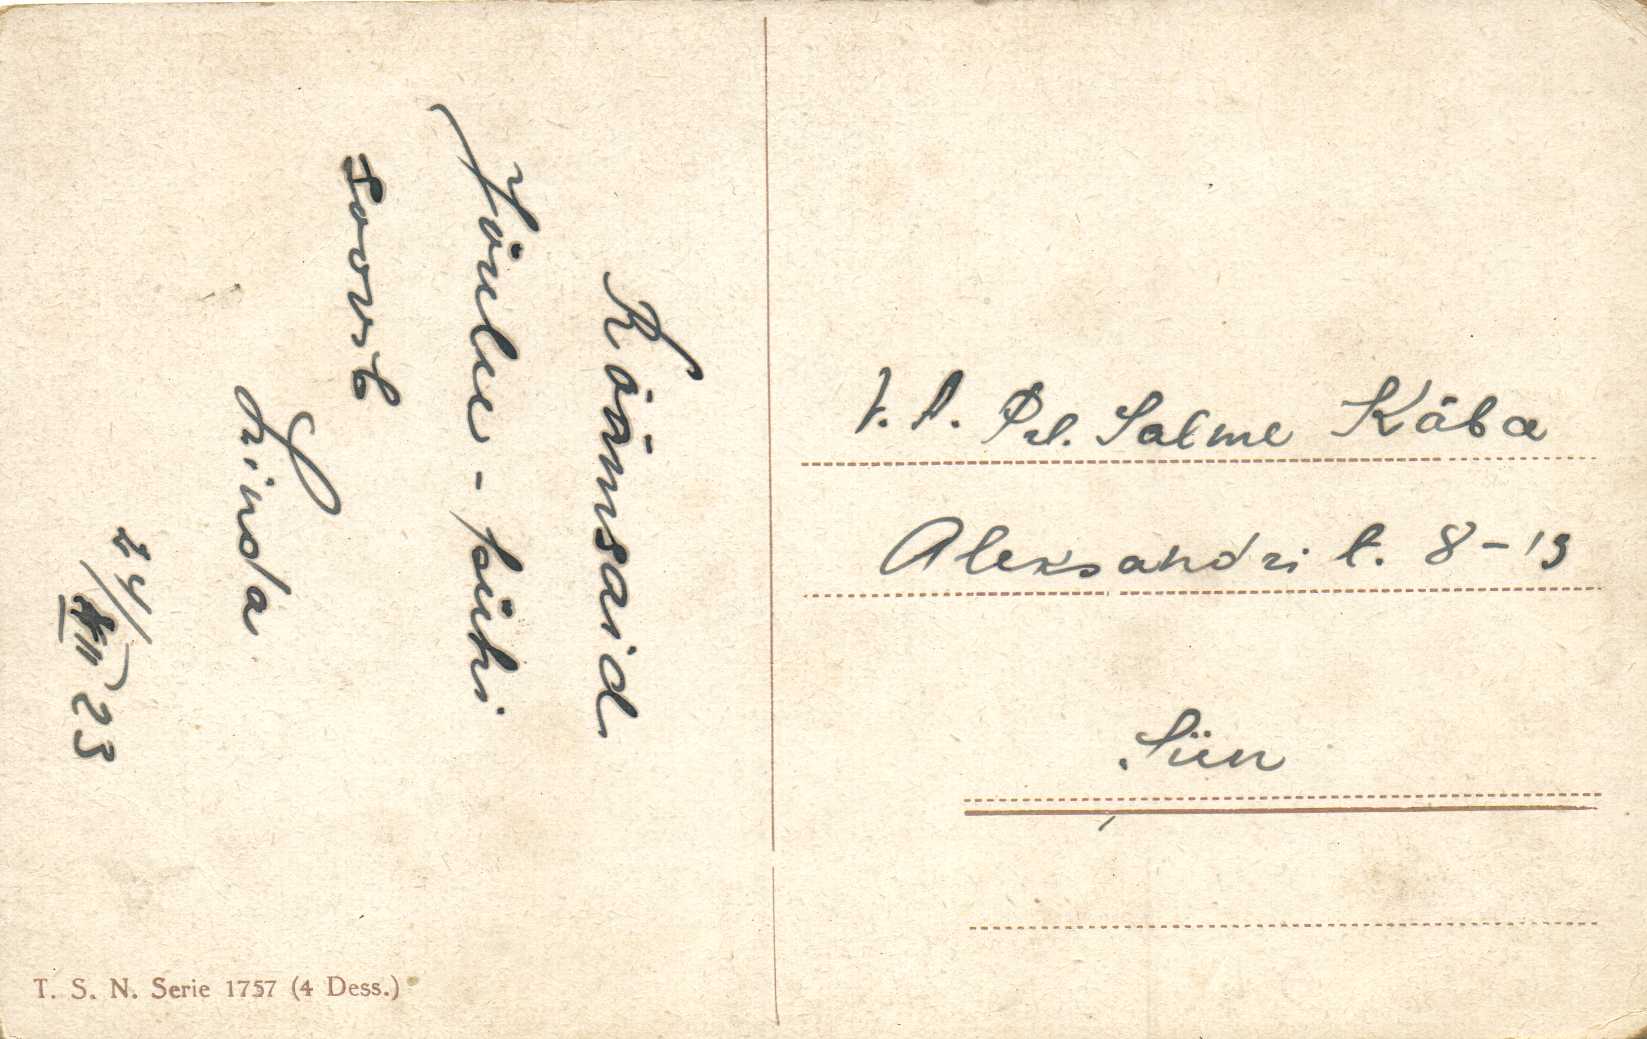 Rõõmsaid
Jõulu-pühi
soovib
Linda
24/XII 23
V. A. Prl. Salme Käba
Aleksandri t. 8-13
Siin
T. S. N. Serie 1757 (4 Dess.)